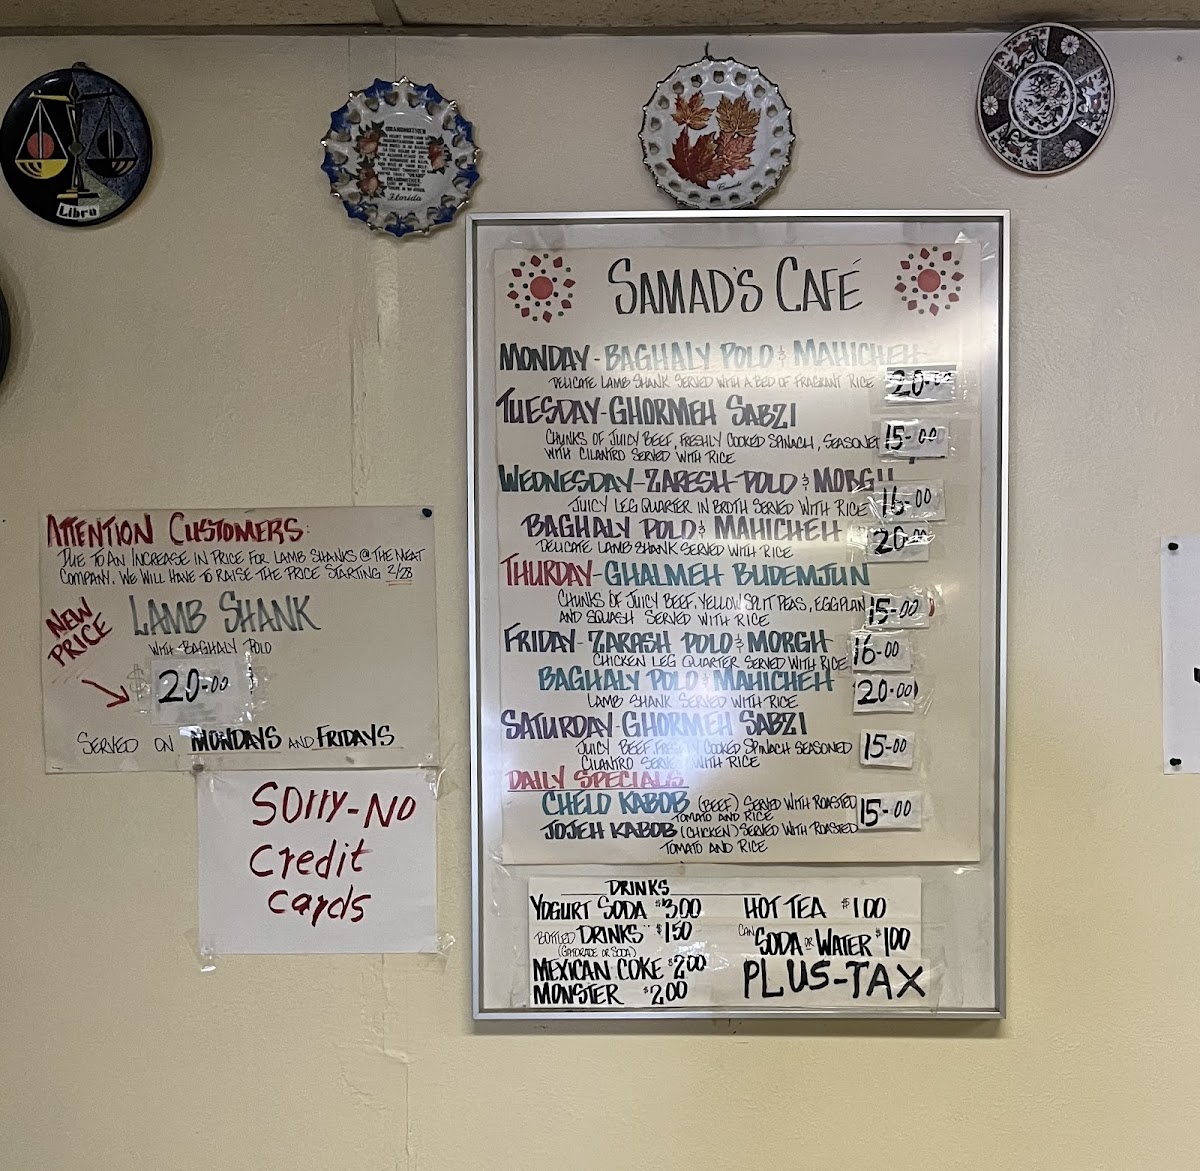 Libra
GRANDMOTHER
Florida
Canada
SAMAD'S CAFÉ
MONDAY - BAGHALY POLO & MAHICHEH
DELICATE LAMB SHANK SERVED WITH A BED OF FRAGRANT RICE 20-00
TUESDAY - GHORMEH SABZI
CHUNKS OF JUICY BEEF, FRESHLY COOKED SPINACH, SEASONED 15-00
WITH CILANTRO SERVED WITH RICE
WEDNESDAY - ZARESH-POLO & MORGH
JUICY LEG QUARTER IN BROTH SERVED WITH RICE 16-00
BAGHALY POLO & MAHICHEH 20-00
DELICATE LAMB SHANK SERVED WITH RICE
THURDAY - GHALMEH BUDEMJUN
CHUNKS OF JUICY BEEF, YELLOW SPLIT PEAS, EGGPLAN 15-00
AND SQUASH SERVED WITH RICE
FRIDAY - ZARASH POLO & MORGH 16-00
CHICKEN LEG QUARTER SERVED WITH RICE
BAGHALY POLO & MAHICHEH 20-00
LAMB SHANK SERVED WITH RICE
SATURDAY - GHORMEH SABZI
JUICY BEEF, FRESHLY COOKED SPINACH SEASONED 15-00
CILANTRO SERVED WITH RICE
DAILY SPECIALS
CHELO KABOB (BEEF) SERVED WITH ROASTED 15-00
TOMATO AND RICE
JOJEH KABOB (CHICKEN) SERVED WITH ROASTED
TOMATO AND RICE
DRINKS
YOGURT SODA $3.00 HOT TEA $1.00
BOTTLED DRINKS $1.50 CAN SODA OR WATER $1.00
(GATORADE OR SODA)
MEXICAN COKE $2.00 PLUS-TAX
MONSTER $2.00
ATTENTION CUSTOMERS:
DUE TO AN INCREASE IN PRICE FOR LAMB SHANKS @ THE MEAT
COMPANY. WE WILL HAVE TO RAISE THE PRICE STARTING 2/28
NEW PRICE
LAMB SHANK
WITH BAGHALY POLO
$ 20-00
SERVED ON MONDAYS AND FRIDAYS
SOrry-NO
Credit
cards